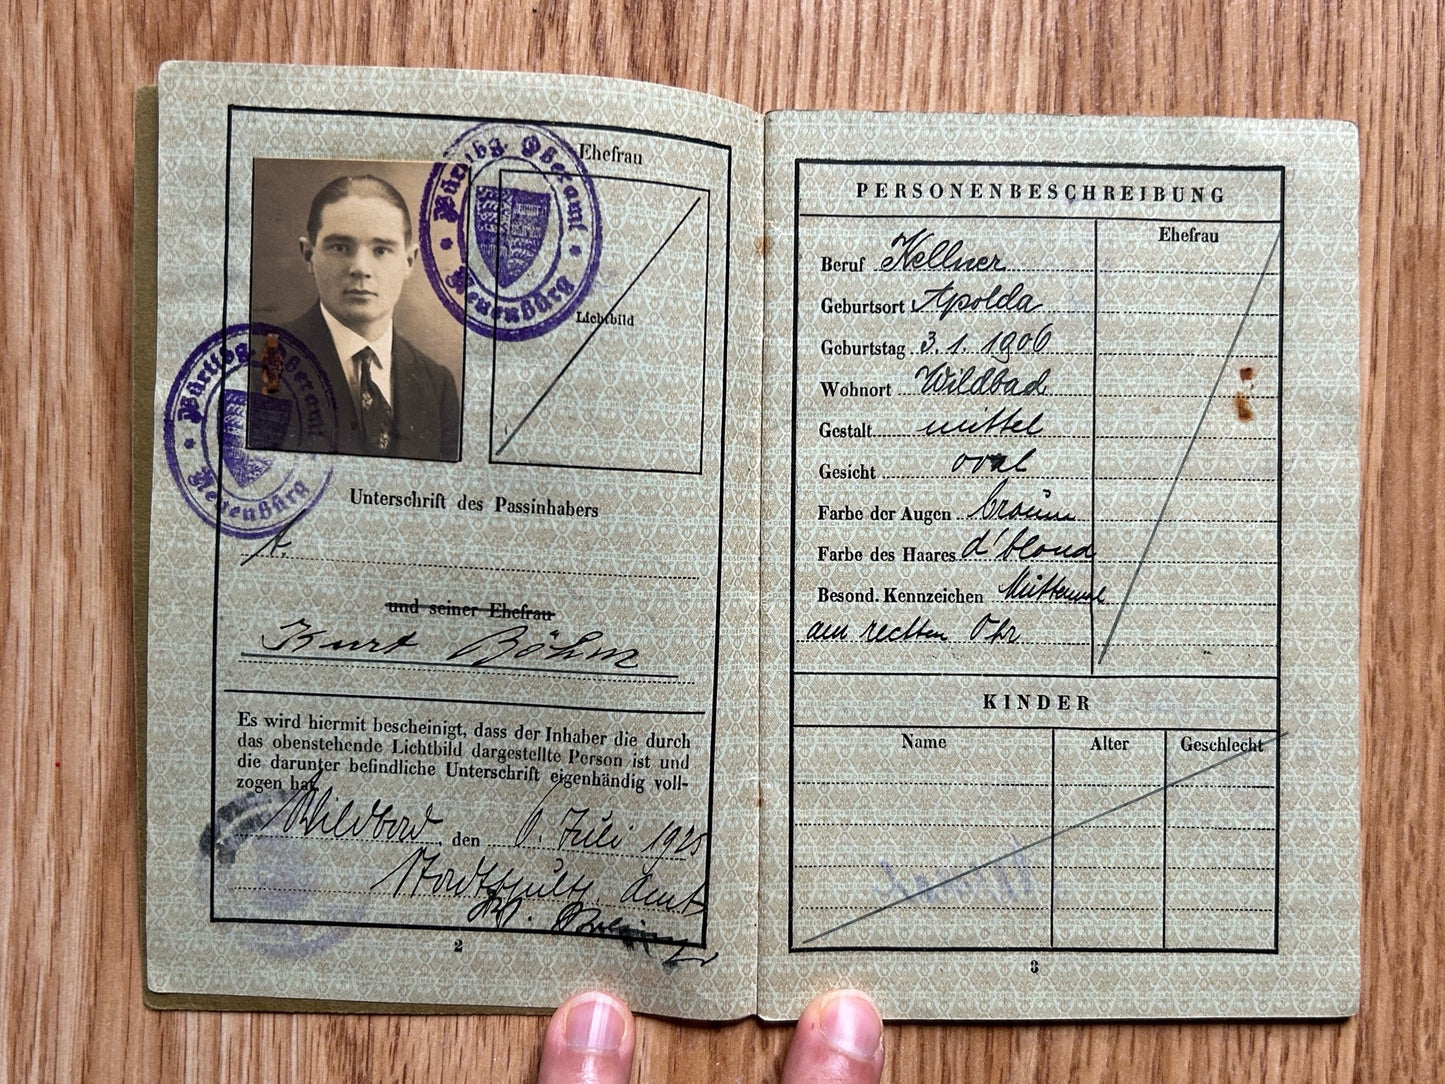 Württbg. Oberamt
Neuenbürg
Ehefrau
Lichtbild
Württbg. Oberamt
Neuenbürg
Unterschrift des Passinhabers
und seiner Ehefrau
Kurt Böhm
Es wird hiermit bescheinigt, dass der Inhaber die durch
das obenstehende Lichtbild dargestellte Person ist und
die darunter befindliche Unterschrift eigenhändig voll-
zogen hat.
Wildbad, den 6. Juli 1925
Stadtschulth. Amt
2
PERSONENBESCHREIBUNG
Ehefrau
Beruf Kellner
Geburtsort Apolda
Geburtstag 3.1.1906
Wohnort Wildbad
Gestalt mittel
Gesicht oval
Farbe der Augen braun
Farbe des Haares d'blond
Besond. Kennzeichen Muttermal
am rechten Ohr
KINDER
Name Alter Geschlecht
3